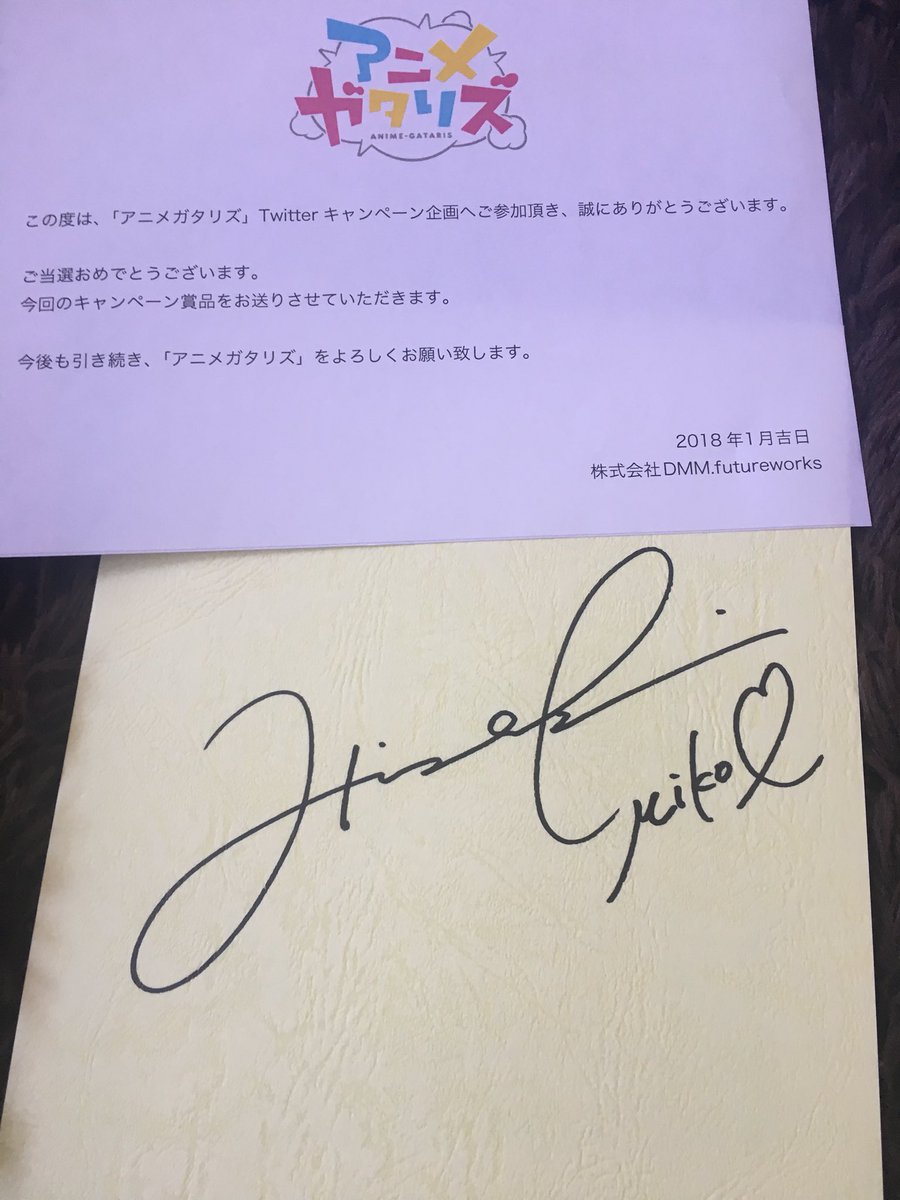 アニメ
ガタリズ
ANIME-GATARIS
この度は、「アニメガタリズ」Twitter キャンペーン企画へご参加頂き、誠にありがとうございます。
ご当選おめでとうございます。
今回のキャンペーン賞品をお送りさせていただきます。
今後も引き続き、「アニメガタリズ」をよろしくお願い致します。
2018年1月吉日
株式会社DMM.futureworks